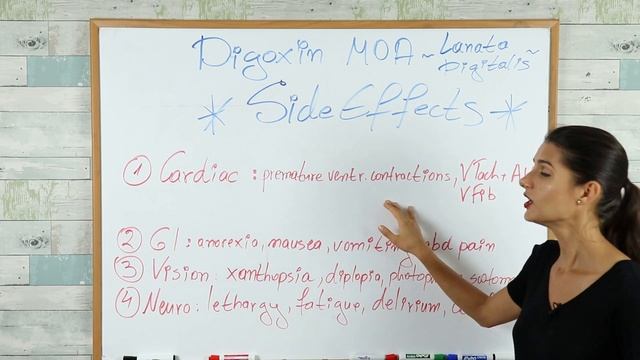 Digoxin MOA ~ Lanata
Digitalis ~
* Side Effects *
① Cardiac : premature ventr. contractions, VTach +
VFib
② GI : anorexia, nausea, vomiting, abd pain
③ Vision : xanthopsia, diplopia,
④ Neuro : lethargy, fatigue, delirium,